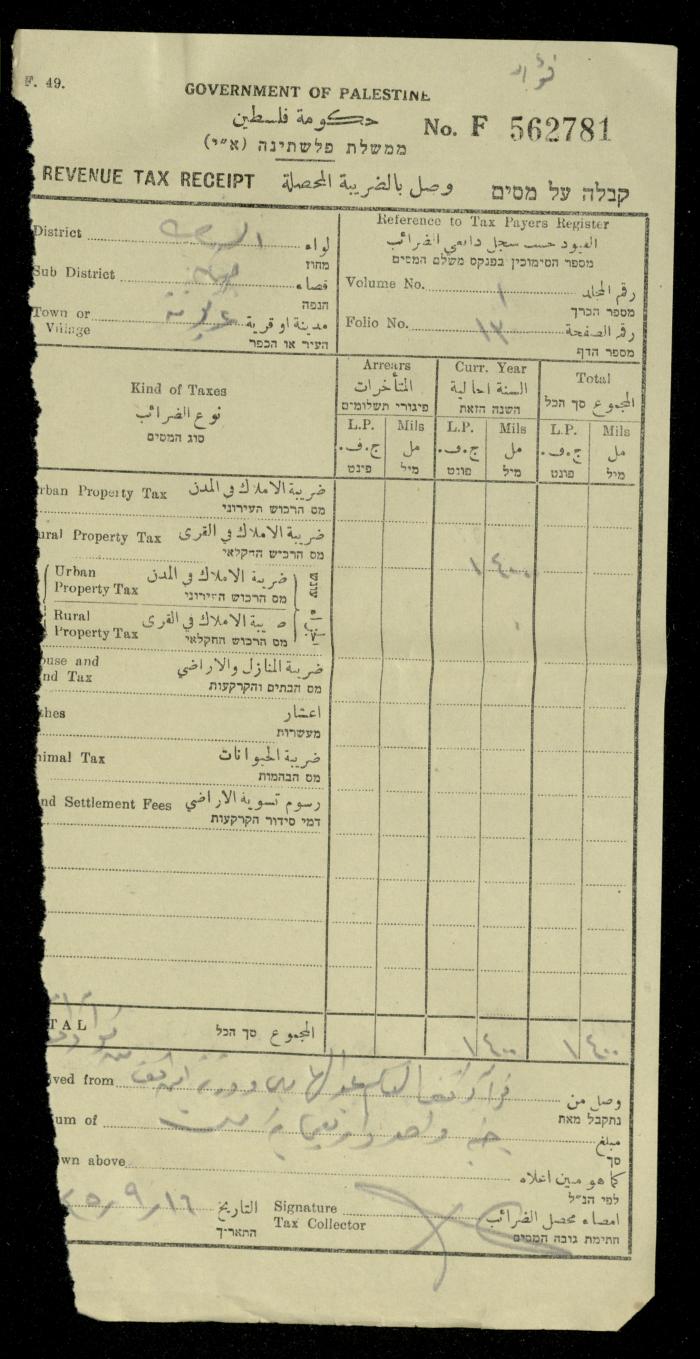 فؤاد
F. 49.
GOVERNMENT OF PALESTINE
حكومة فلسطين
No. F 562781
ממשלת פלשתינה (א״י)
REVENUE TAX RECEIPT وصل بالضريبة المحصلة קבלה על מסים
District لواء
מחוז
Sub District قضاء
הנפה
Town or Village مدينة او قرية
העיר או הכפר
Reference to Tax Payers Register
القيود حسب سجل دافعي الضرائب
מספר הסימוכין בפנקס משלם המסים
Volume No. ١ رقم المجلد
מספר הכרך
Folio No. ١٣ رقم الصفحة
מספר הדף
Kind of Taxes
نوع الضرائب
סוג המסים
Arrears
المتأخرات
פיגורי תשלומים
Curr. Year
السنة الحالية
השנה הזאת
Total
المجموع סך הכל
L.P. Mils L.P. Mils L.P. Mils
ج.ف. مل ج.ف. مل ج.ف. مل
פינט מיל פונט מיל פונט מיל
rban Property Tax ضريبة الاملاك في المدن
מס הרכוש העירוני
ural Property Tax ضريبة الاملاك في القرى
מס הרכיש החקלאי
١ ٤٠٠
Urban Property Tax ضريبة الاملاك في المدن
מס הרכוש העירוני
Rural Property Tax ضريبة الاملاك في القرى
מס הרכוש החקלאי
ouse and
nd Tax ضريبة المنازل والاراضي
מס הבתים והקרקעות
hes اعشار
מעשרות
nimal Tax ضريبة الحيوانات
מס הבהמות
nd Settlement Fees رسوم تسوية الاراضي
דמי סידור הקרקעות
TAL المجموع סך הכל ١ ٤٠٠ ١ ٤٠٠
ved from وصل من
נתקבל מאת
um of مبلغ
סך
wn above كما هو مبين اعلاه
לפי הנ״ל
٤٥/٩/١٦ التاريخ
התאריך
Signature
Tax Collector
امضاء محصل الضرائب
חתימת גובה המסים